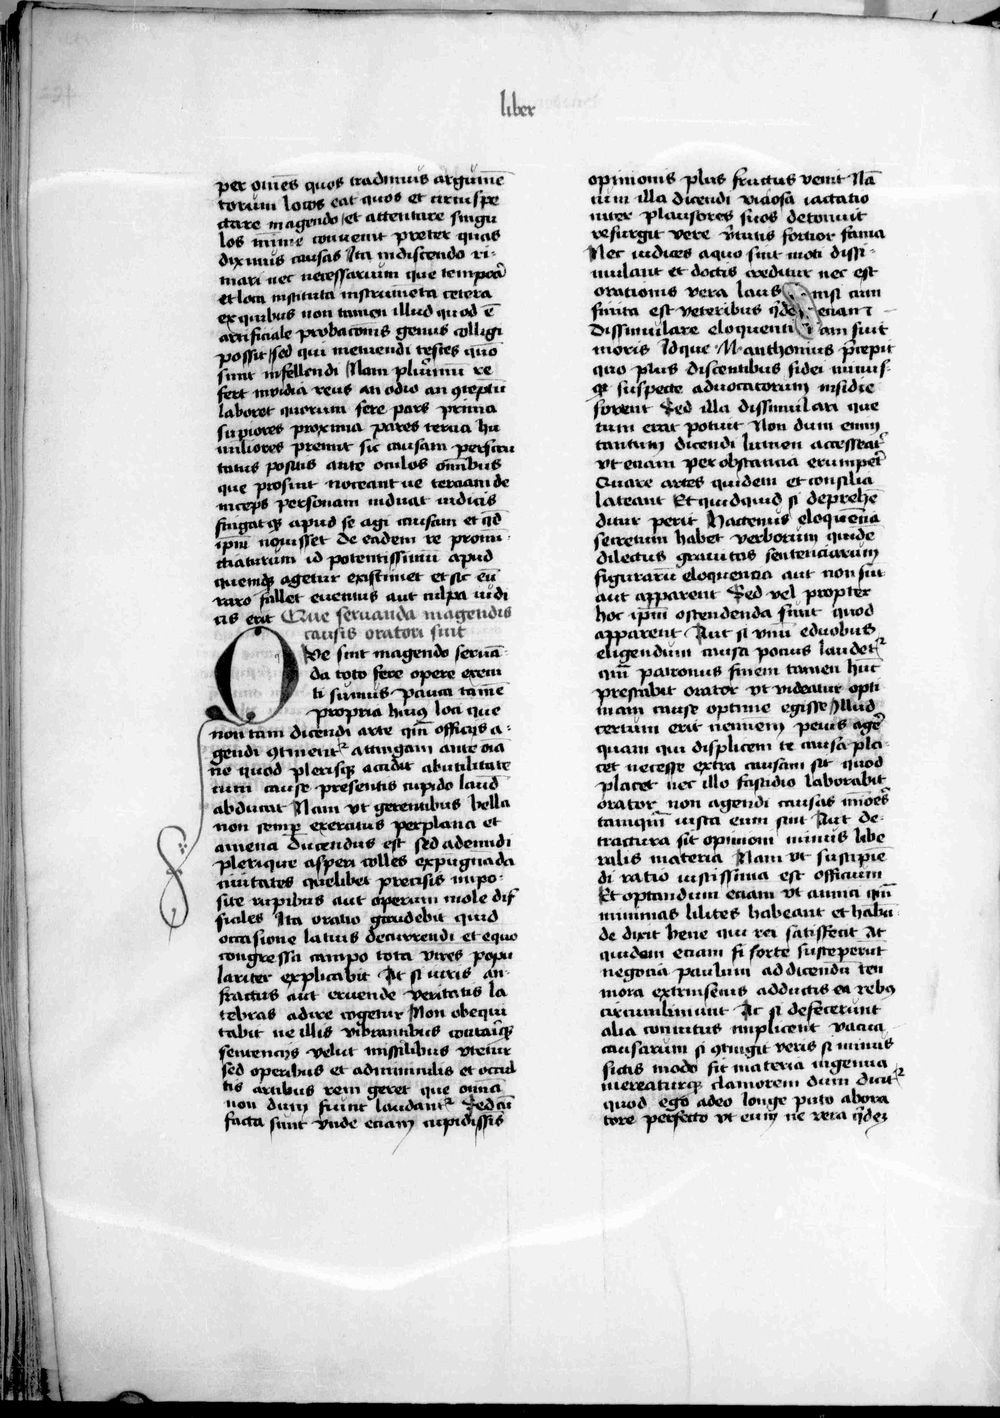 liber
per omēs quos tradimus argumē
torum locos eat quos et circūspe
ctare in agendo et attentare singu
los mīme convenit preter quas
diximus causas Ita in discendo ri-
mari nec necessarium que tempora
et loca instituta instrumēta cetera
ex quibus non tamen illud quod ē
artificiale probacōnis genus colligi
possit sed qui metuendi testes quō
sunt infellendi Nam plurimū re
fert invidia reus an odio an ꝯteptu
laboret quorum fere pars prima
supiores proxima pares tercia hu
miliores premit sic causam perscru
tatus positis ante oculos omībus
que prosint noceant ve terciam de
inceps personam induat iudicis
fingatqꝫ apud se agi causam et qd
ipm̄ movisset de eadem re pronū-
ciaturum id potentissimū apud
quemqꝫ agetur existimet et sic eū
raro fallet eventus aut culpa iudi
cis erit Que servanda in agendis
causis oratori sint
QVe sint in agendo servā-
da toto fere opere execu
ti sumus pauca tamē
propria huius loci que
non tam dicendi arte qm̄ officijs a-
gendi ꝯtinent᷑ attingam ante oīa
ne quod plerisqꝫ accidit ab utilitate
eum cause presentis cupido laud
abducat Nam vt gerentibus bella
non semꝑ exercitus per plana et
amena ducendus est sed adeundi
plerique asperi colles expugnāda
civitates quelibet precisis impo-
site rupibus aut operum mole dif
ficiles Ita oratio gaudebit quid
occasione lacius decurrendi et equo
congressa campo tota vires popu
lariter explicabit At si iuris an-
fractus aut eruende veritatis la
tebras adire cogetur Non obequi
tabit ne illis vibrantibus concitisqꝫ
sentencijs velut missilibus vtetur
sed operibus et adminiculis et occul
tis artibus rem geret que omīa
non dum fiunt laudant᷑ Sed cū
facta sunt vnde eciam cupidissīs
opinionis plus fructus venit Nā
cum illa dicendi viciosa iactatio
inter plausores suos detonuit
resurgit vere v̄tutis fortior fama
Nec iudices a quo sint moti dissi-
mulant et doctis creditur nec est
orationis vera laus nisi cum
finita est veteribus q̄dem eciam
Dissimulare eloquenciam fuit
moris Idque M anthonius p̄cepit
quo plus dicentibus fidei minus-
qꝫ suspecte advocatorum insidie
forent Sed illa dissimulari que
tum erat potuit Non dum enim
tantum dicendi lumen accesserat᷑
vt eciam per obstancia erumper᷑
Quare artes quidem et consilia
lateant Et quidquid si deprehē
ditur perit Hactenus eloquencia
secretum habet verborum quidē
dilectus gravitas sentenciarum
figurarū eloquencia aut non sūt
aut apparent Sed vel propter
hoc ipm̄ ostendenda sunt quod
apparent Aut si vnū e duobus
eligendum causa pocius laudet᷑
qm̄ patronus finem tamen hūc
prestabit orator vt videatur opti
mam cause optime egisse Illud
certum erit neminem peius agē
quam qui displicente causa pla-
cet necesse extra causam sit quod
placet nec illo fastidio laborabit
orator non agendi causas mīores
tamqm̄ iusta eum sint Aut de-
tractura sit opinioni minus libe
ralis materia Nam vt suscipiē
di ratio iustissima est officium
Et optandum eciam vt amici qm̄
minimas lilites habeant et habū-
de dixit bene qui rei satisfecit At
quidam eciam si forte susceperunt
negocia paulum ad dicendū ten
niora extrinsecus adductis ea rebꝰ
circumliniunt Ac si defecerunt
alia convitiis implicent vacua
causarum si ꝯtingit veris si minus
fictis modo sit materia ingenia
mereaturqꝫ clamorem dum dicit᷑
quod ego adeo longe puto abora
tore perfecto vt eum ne vera q̄dem